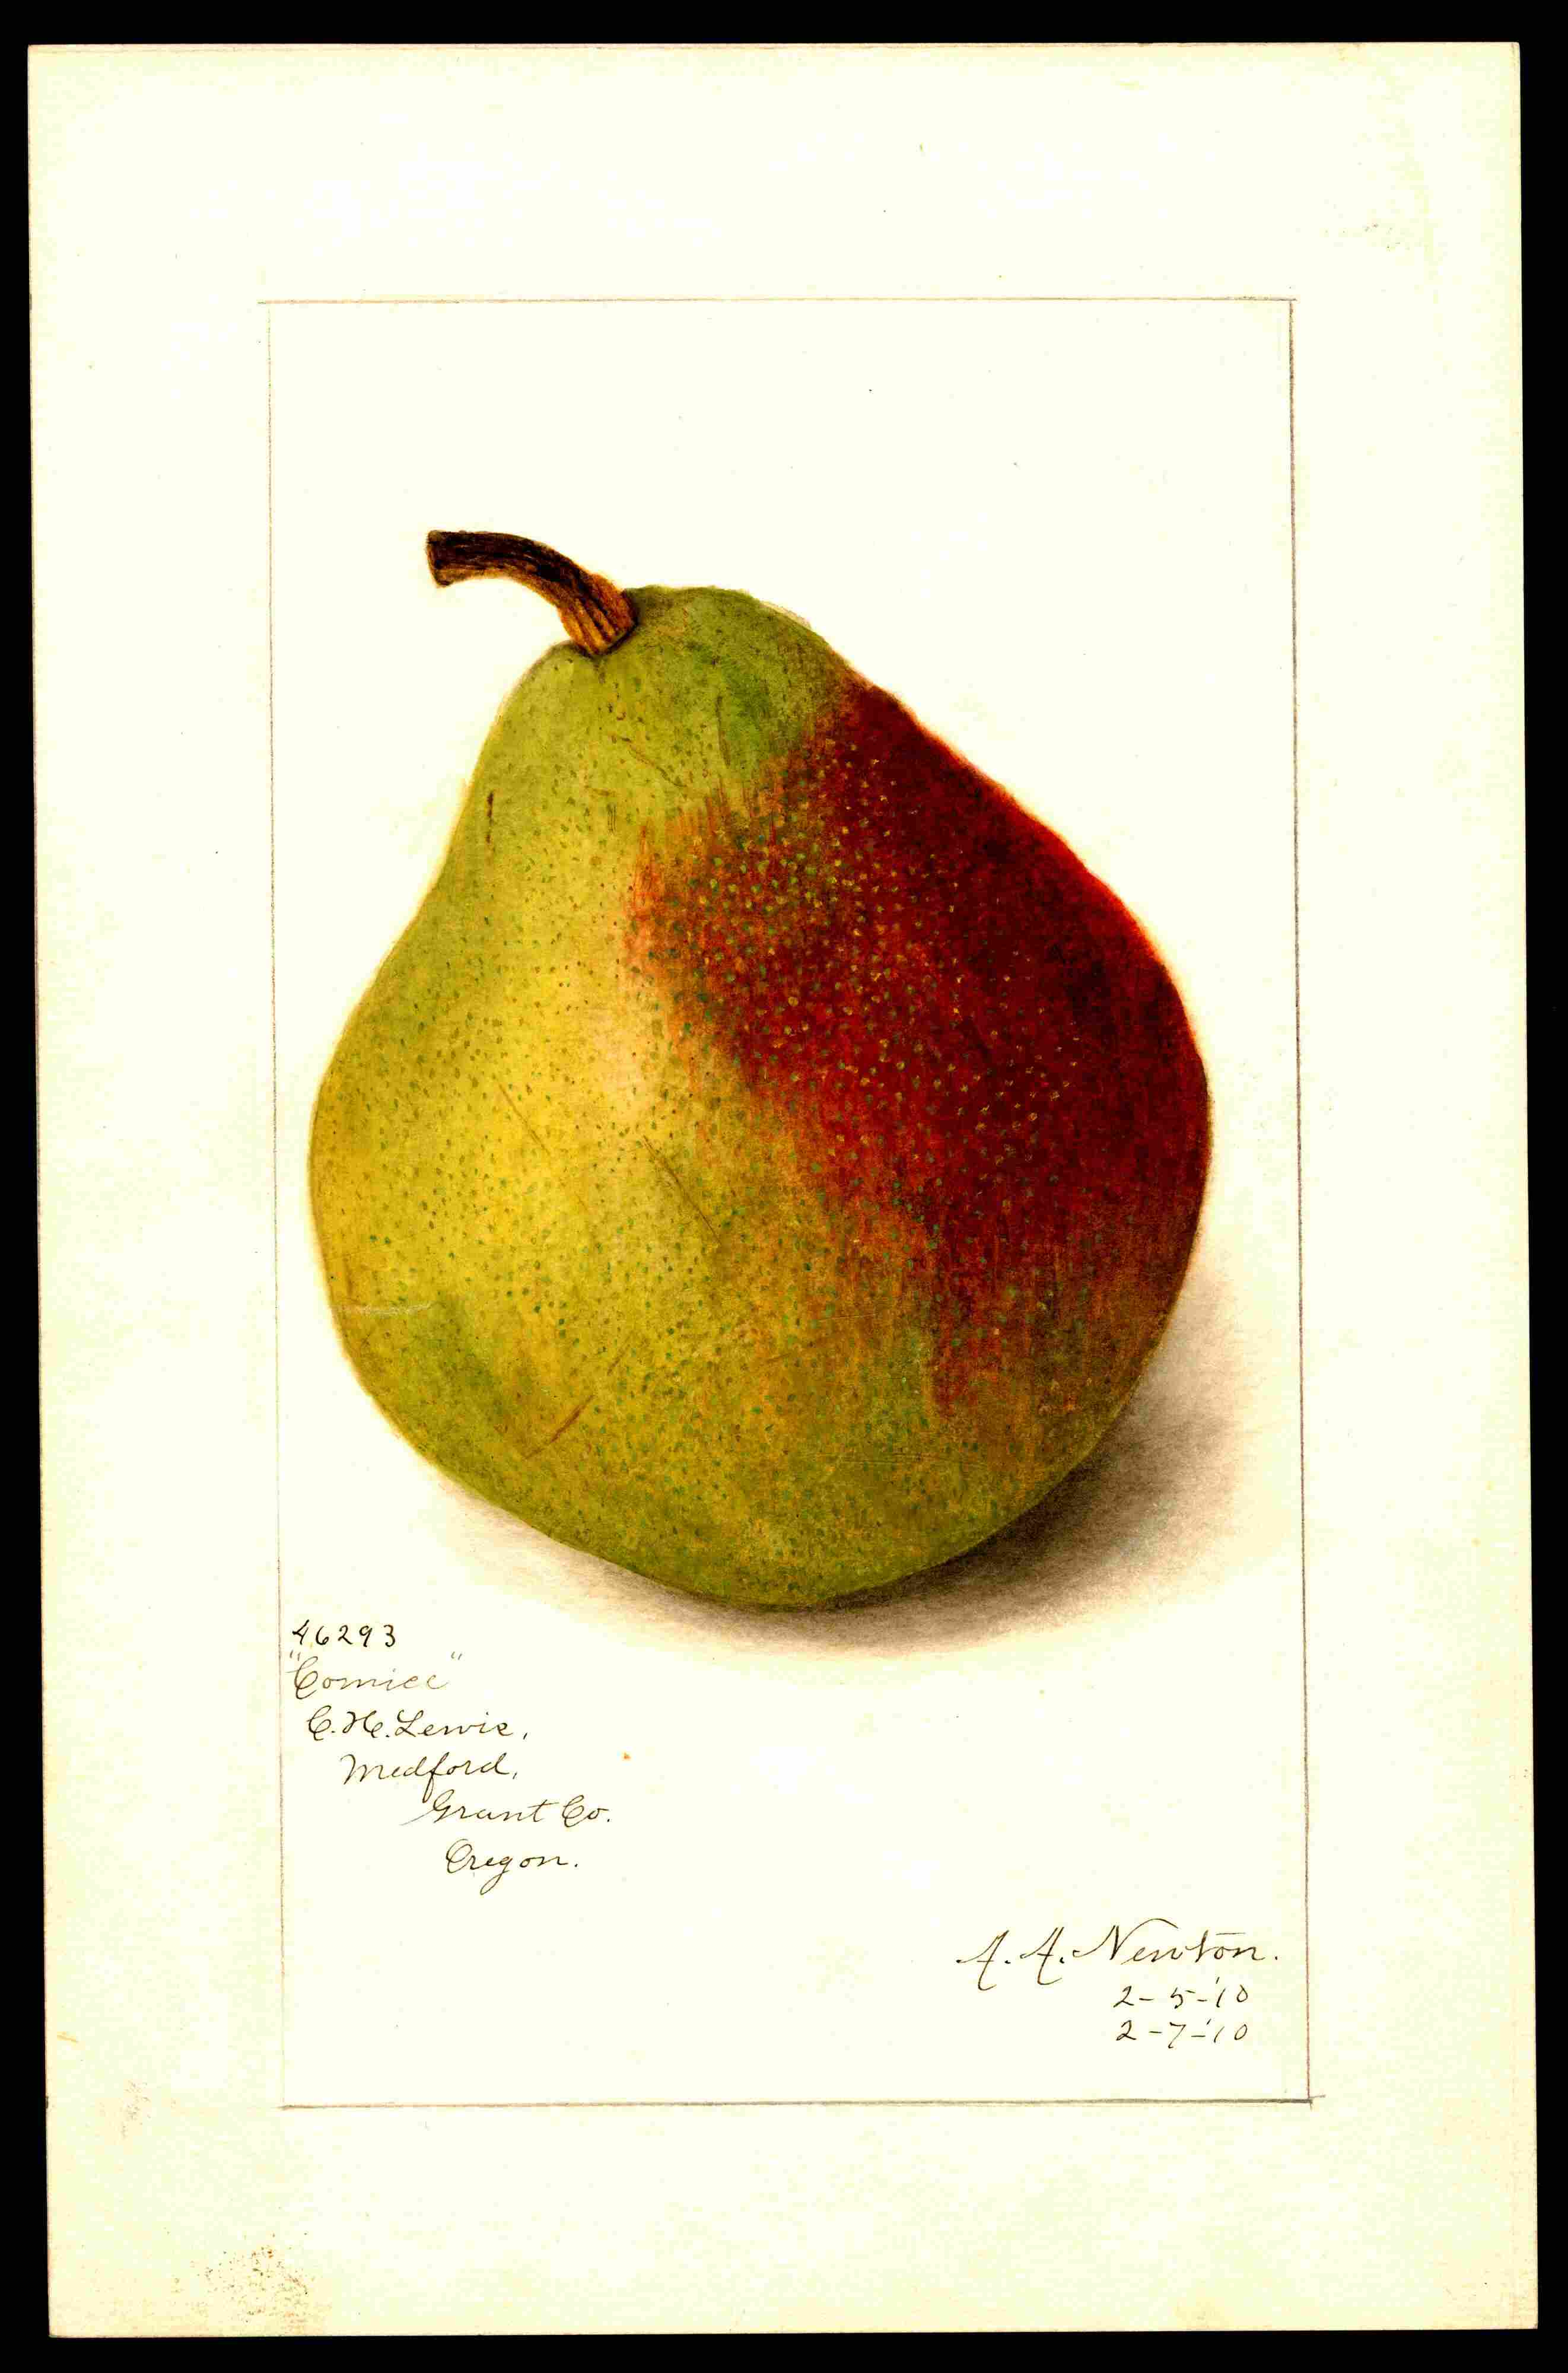 46293
"Comice"
C. H. Lewis,
Medford,
Grant Co.
Oregon.
A. A. Newton.
2-5-'10
2-7-'10